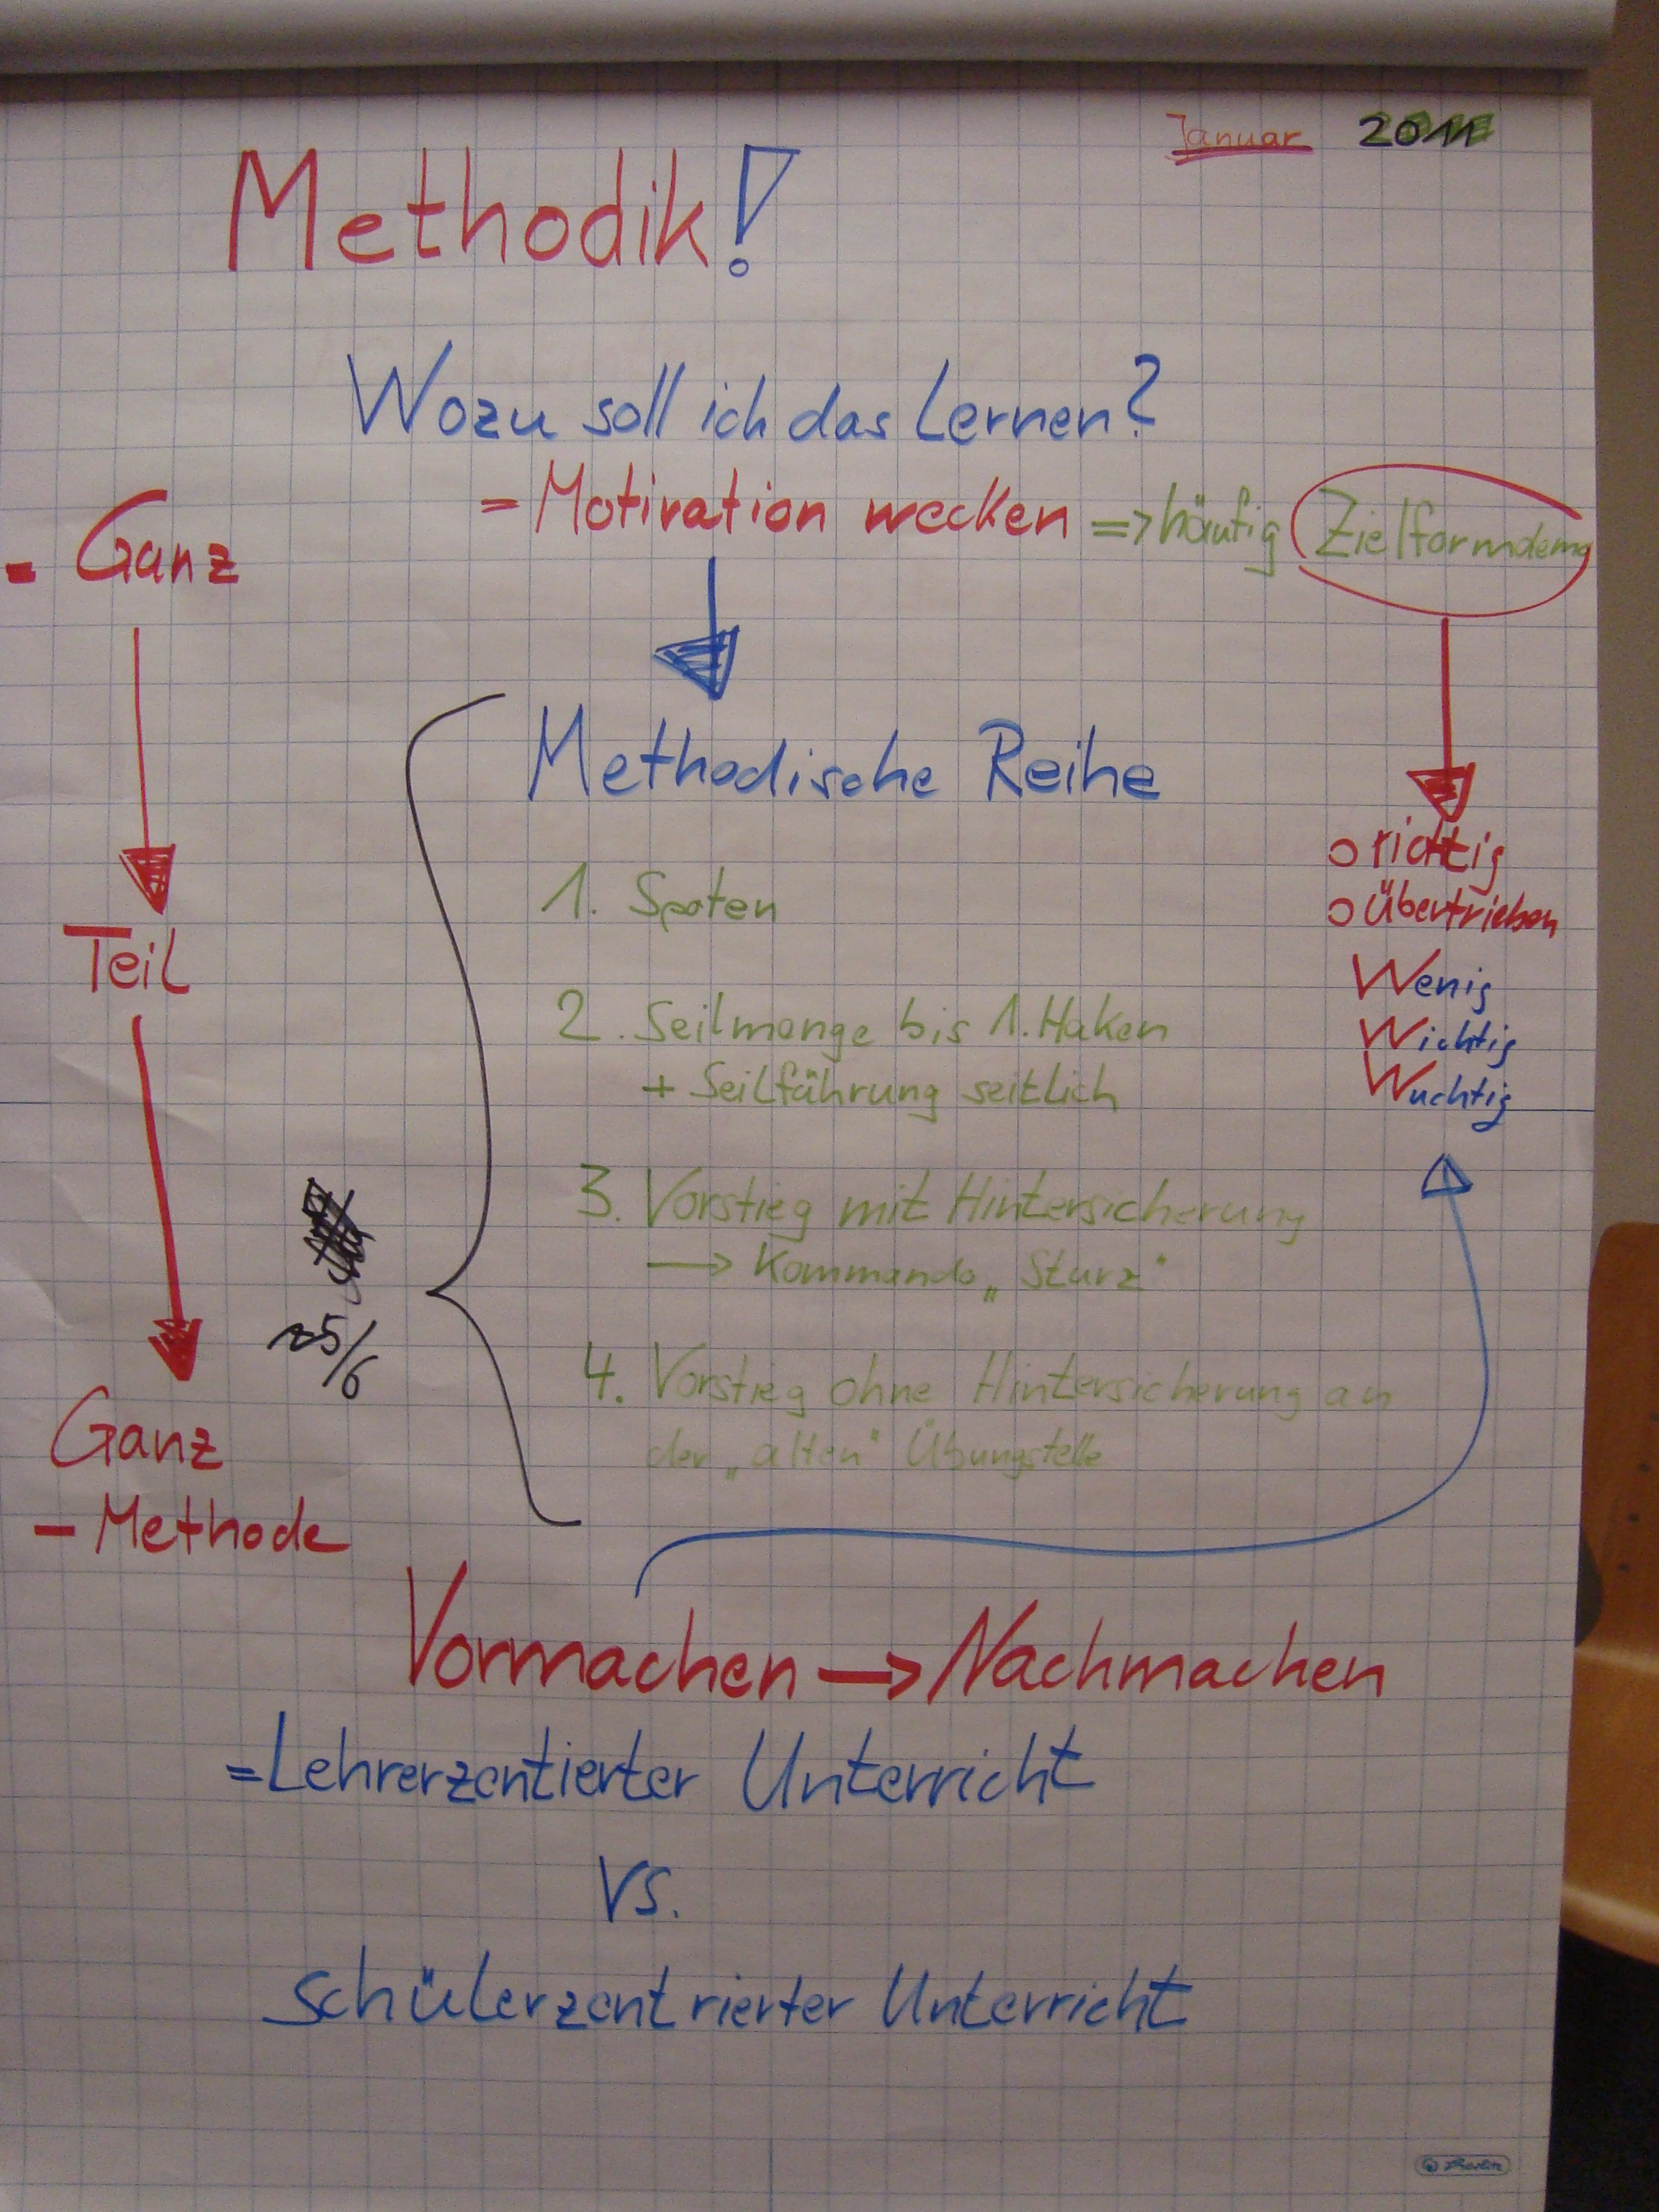 Januar 2011
Methodik!
Wozu soll ich das Lernen?
= Motivation wecken => häufig Zielformdemo
= Ganz
Methodische Reihe
o richtig
1. Spoten
o übertrieben
Teil
Wenig
2. Seilmenge bis 1. Haken
Wichtig
+ Seilführung seitlich
Wuchtig
3. Vorstieg mit Hintersicherung
→ Kommando „Sturz"
~5/6
4. Vorstieg ohne Hintersicherung an
der „alten" Übungstelle
Ganz
- Methode
Vormachen → Nachmachen
= Lehrerzentierter Unterricht
VS.
schülerzentrierter Unterricht